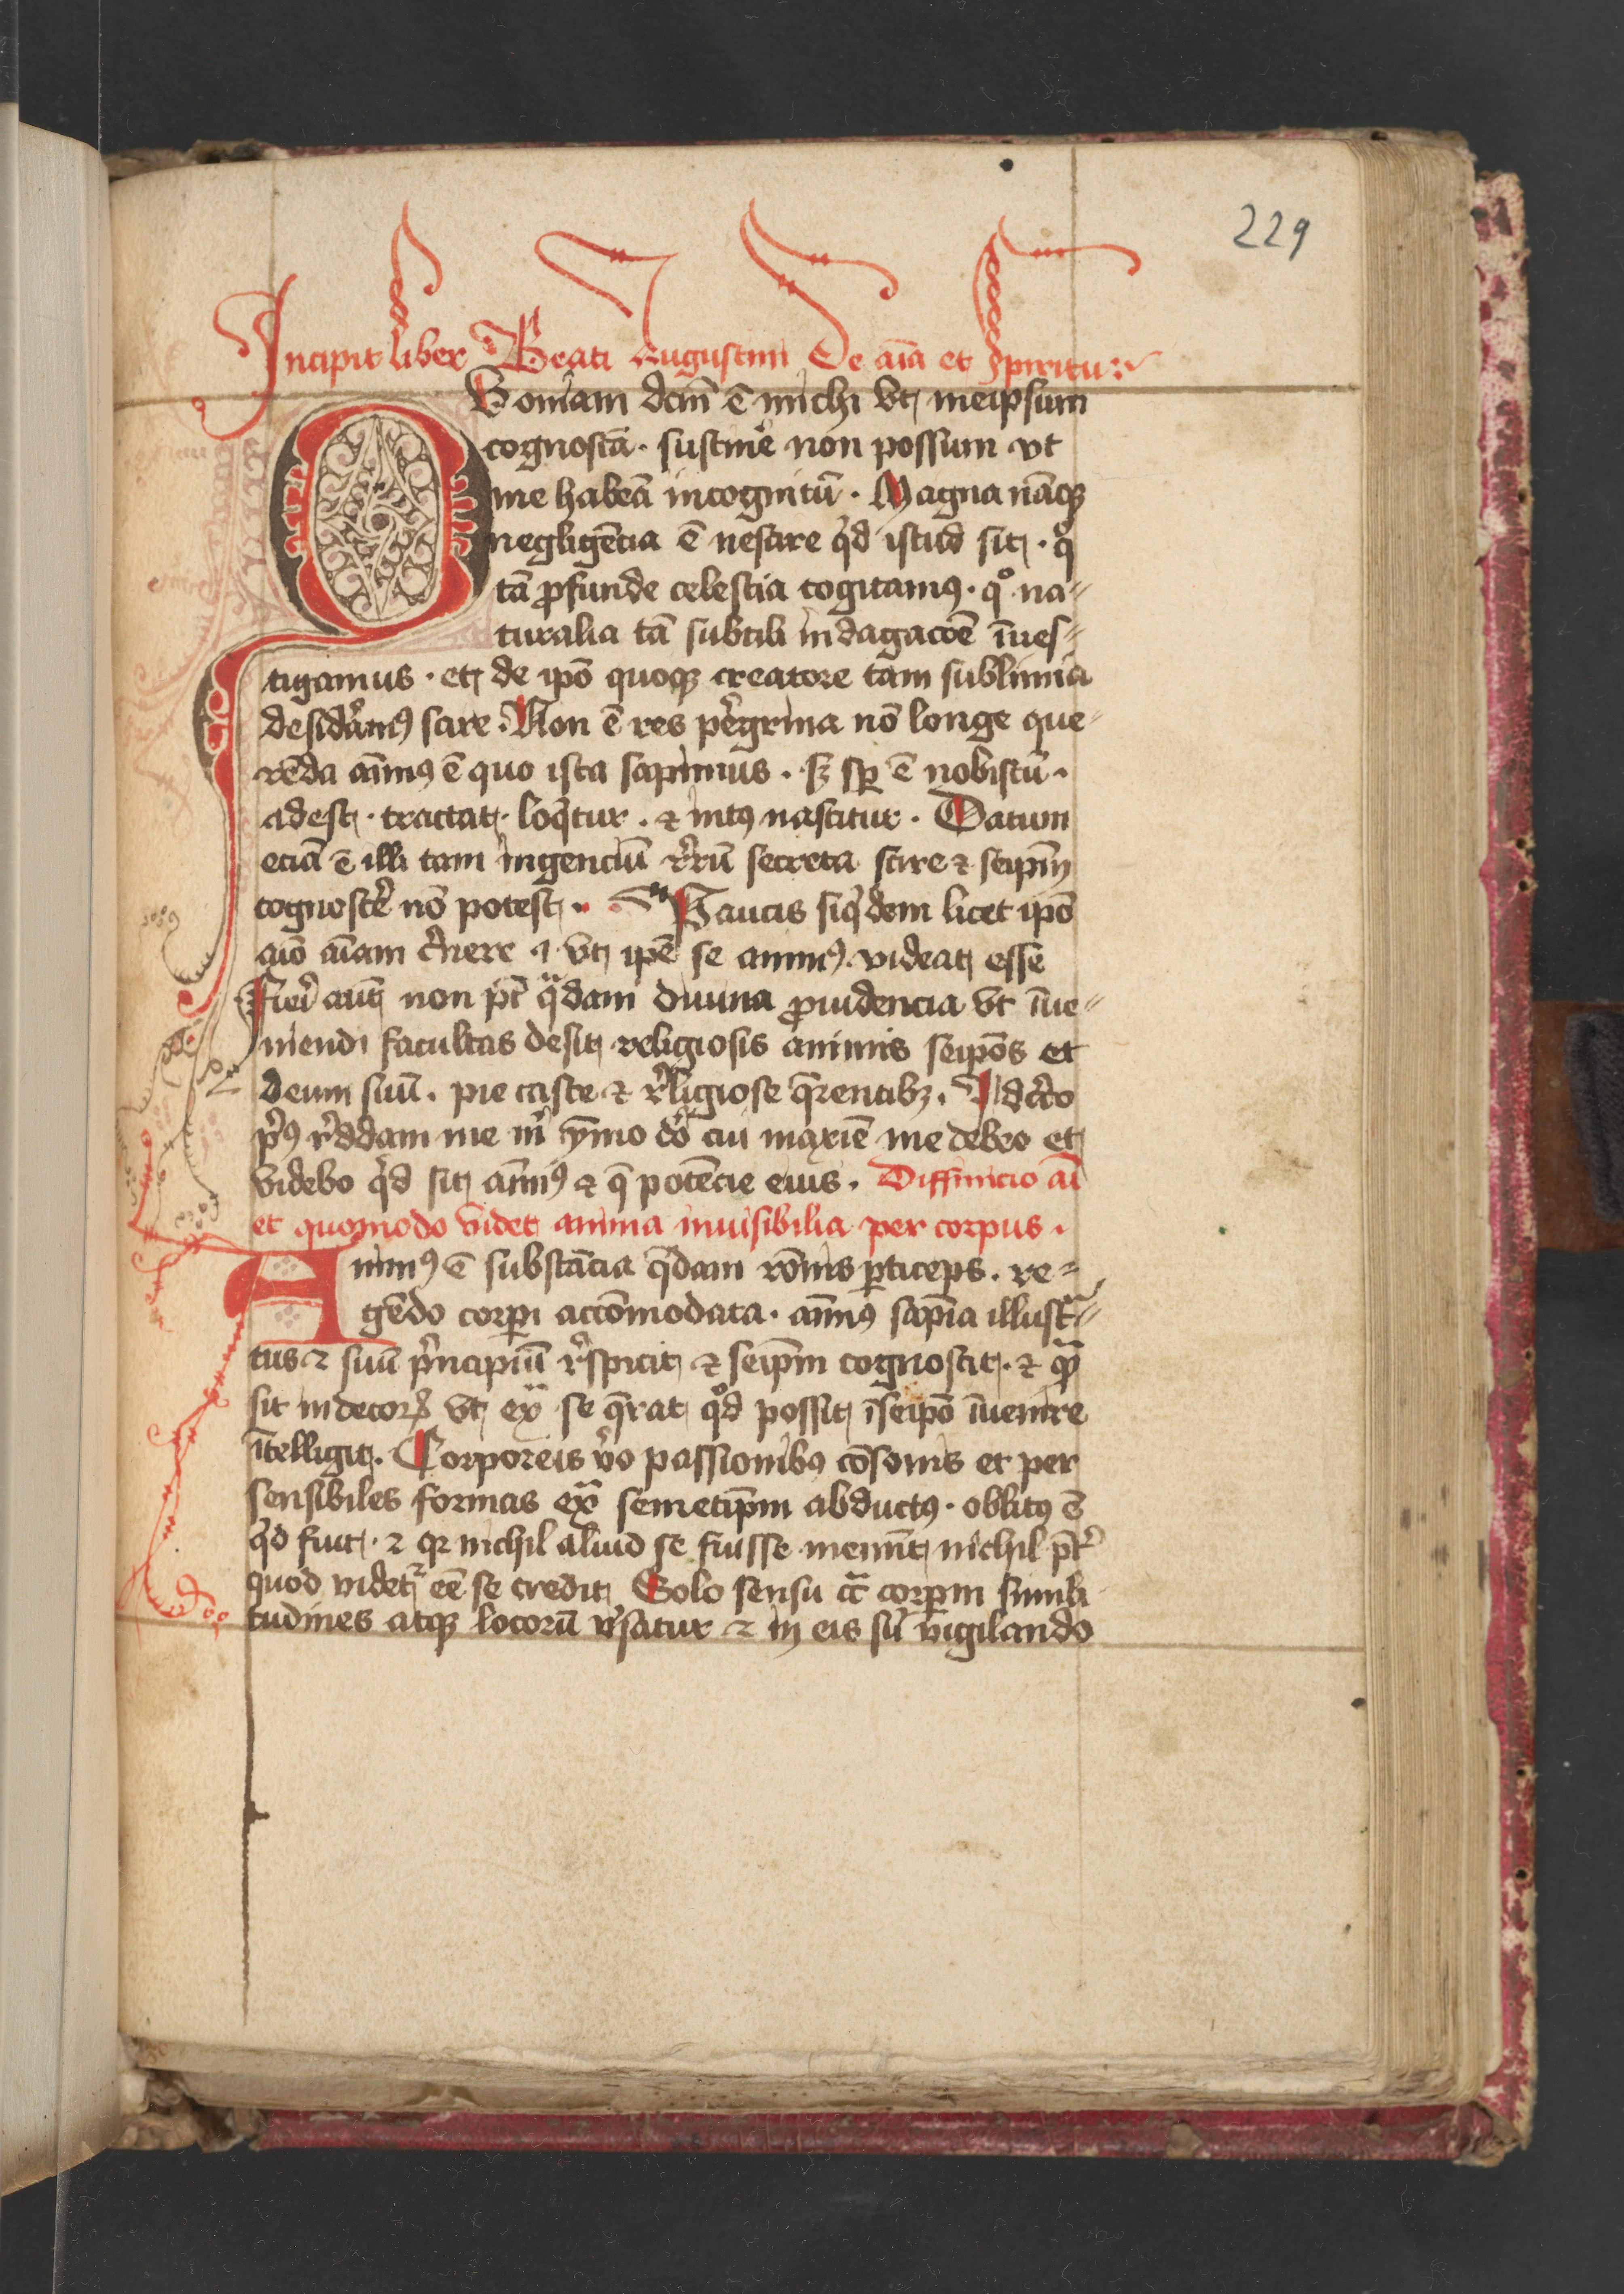 229
Incipit liber Beati Augustini De aīa et spiritu
Quoniam dcm̄ ē michi vt meipsum
cognoscā · sustinē non possum vt
me habeā incognitū · Magna nāq3
negligēcia ē nescire qͥd istud sit · qͦ
tā ꝓfunde celestia cogitamꝰ · qͦ na-
turalia tā subtili indagacōe īues-
tigamus · et de ipō quoq3 creatore tam sublimia
desidãmꝰ scire · Non ē res pe̓grina nō longe que-
rēda aīmꝰ ē quo ista sapimus · s3 sꝑ ē nobiscū ·
adest · tractat · loqͥtur · ⁊ intꝰ nascitur · Datum
eciā ē illi tam ingenciū r̓rū secreta scire ⁊ seip̄m
cognosce̓ nō potest · Paucis siqͥdem licet ipō
aīo aīam c̓nere ⁊ vt ipē se animꝰ videat esse
Fieri aut̄ non pt̄ qᷓdam diuina ꝓuidencia vt īue-
niendi facultas desit religiosis animis seipōs et
deum suū · pie caste ⁊ r̓ligiose qr̄entib3 · Idcͥco
pͥꝰ r̓ddam me m̓ ymo dō cui maxīe me debeo et
videbo qͥd sit aīmꝰ ⁊ q̄ potēcie eius · Diffinicio aī
et quomodo videt anima inuisibilia per corpus ·
Animꝰ ē substācia q̄dam rōnis ꝑticeps · re-
gēdo corꝑi accōmodata · aīmꝰ sapīa illustᷓ-
tus ⁊ suū pͥncipiū r̓spicit ⁊ seip̄m cognoscit · ⁊ qᷓ
sit indecorꝝ vt exᷓ se qr̄at qͦd possit ī seipō īuenire
ītelligit · Corporeis v̓o passionibꝰ cōsonis et per
sensibiles formas exᷓ semetip̄m abductꝰ · oblitꝰ ē
qͥd fuit · ⁊ qꝛ nichil aliud se fuisse meminit nichil pͭ̄
quod videtᷣ eē se credit Solo sensu cͨᷓ corꝑm simili
tudines atq3 locorū v̓satur ⁊ in eis sū vigilando